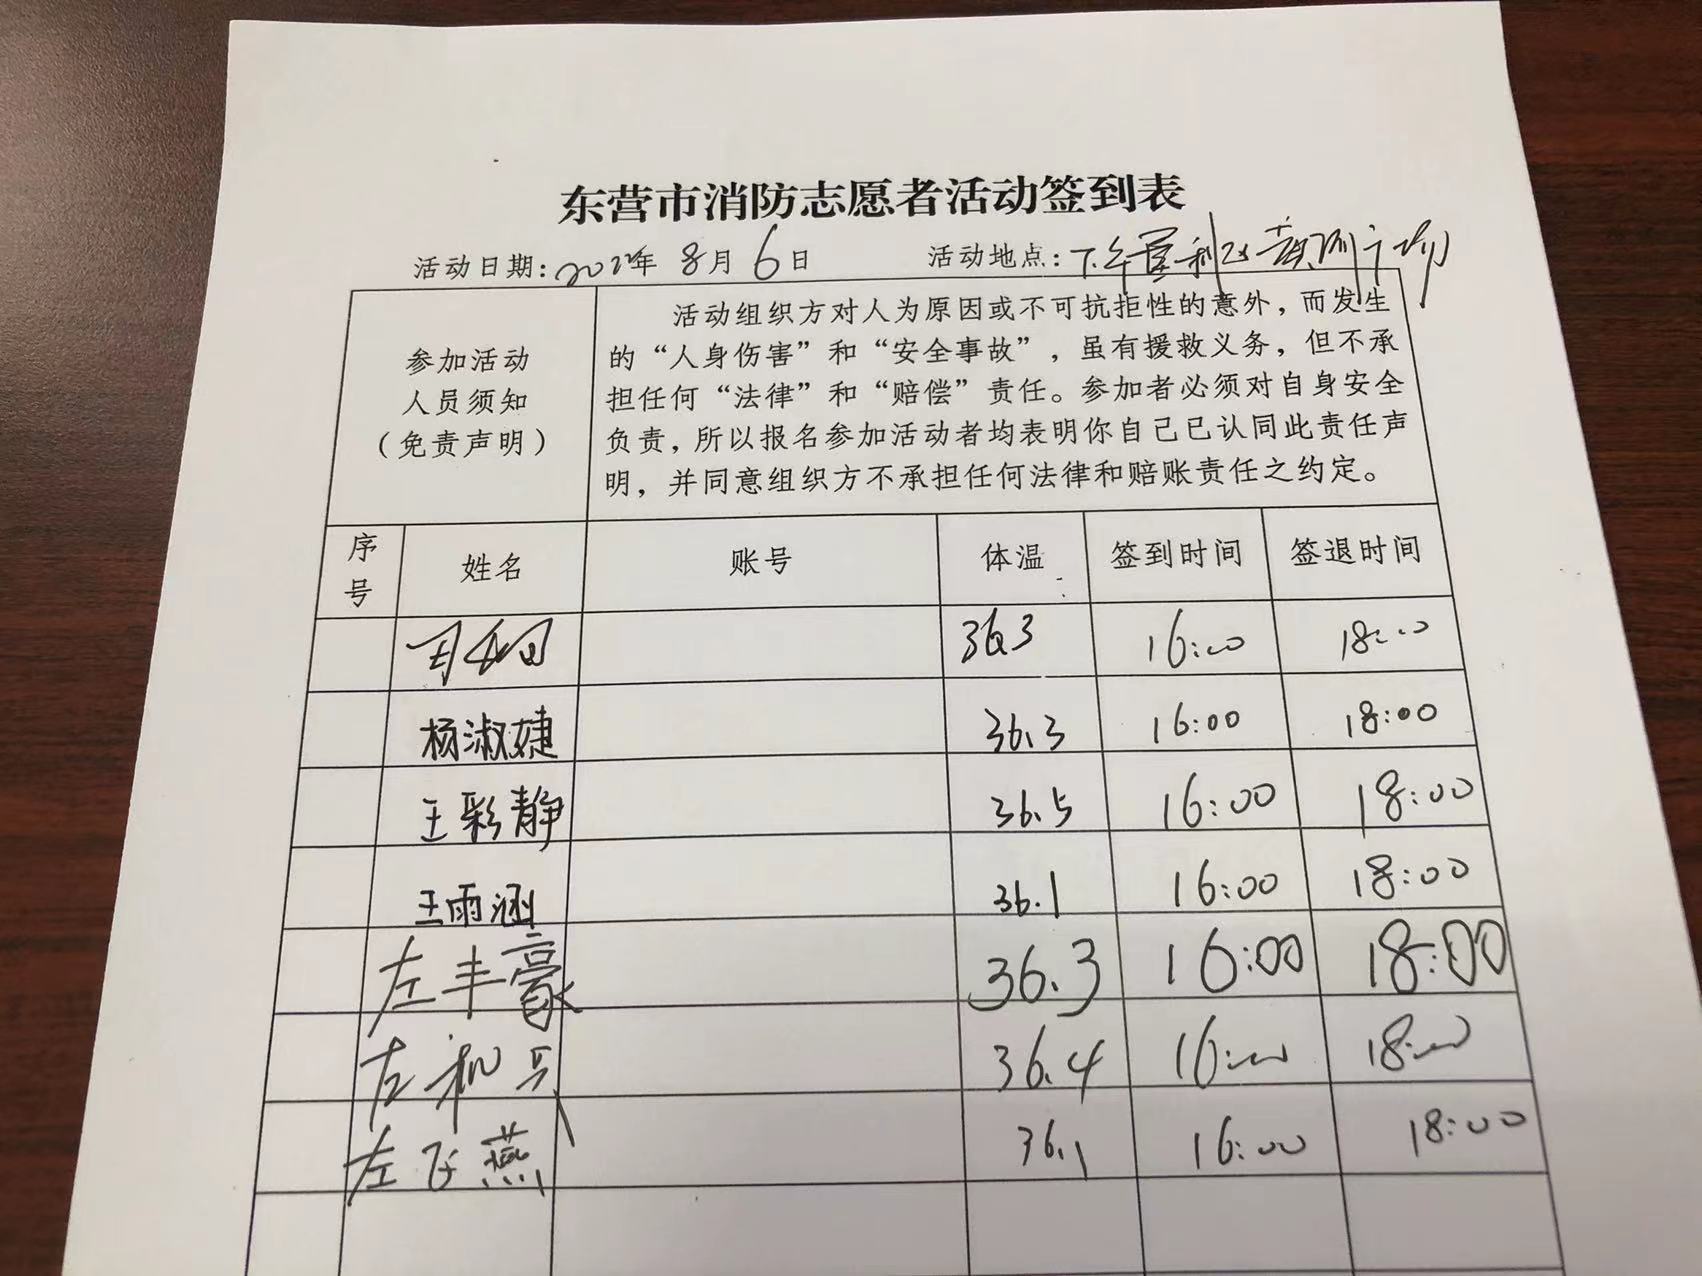 东营市消防志愿者活动签到表
活动日期:2022年 8月 6日 活动地点:下午
参加活动
人员须知
(免责声明)
活动组织方对人为原因或不可抗拒性的意外，而发生
的“人身伤害”和“安全事故”，虽有援救义务，但不承
担任何“法律”和“赔偿”责任。参加者必须对自身安全
负责，所以报名参加活动者均表明你自己已认同此责任声
明，并同意组织方不承担任何法律和赔账责任之约定。
序号 姓名 账号 体温 签到时间 签退时间
36.3 16:00 18:00
杨淑婕 36.3 16:00 18:00
王彩静 36.5 16:00 18:00
王雨涵 36.1 16:00 18:00
左丰豪 36.3 16:00 18:00
左 36.4 16:00 18:00
左飞燕 36.1 16:00 18:00